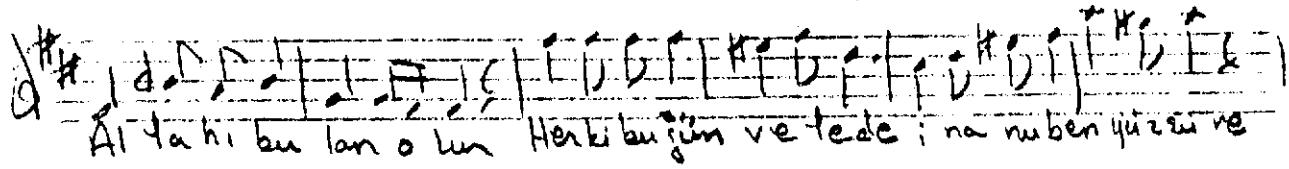 Al la hı bu lan o lur Her ki bu gün ve le de i na nu ben yüz sü re